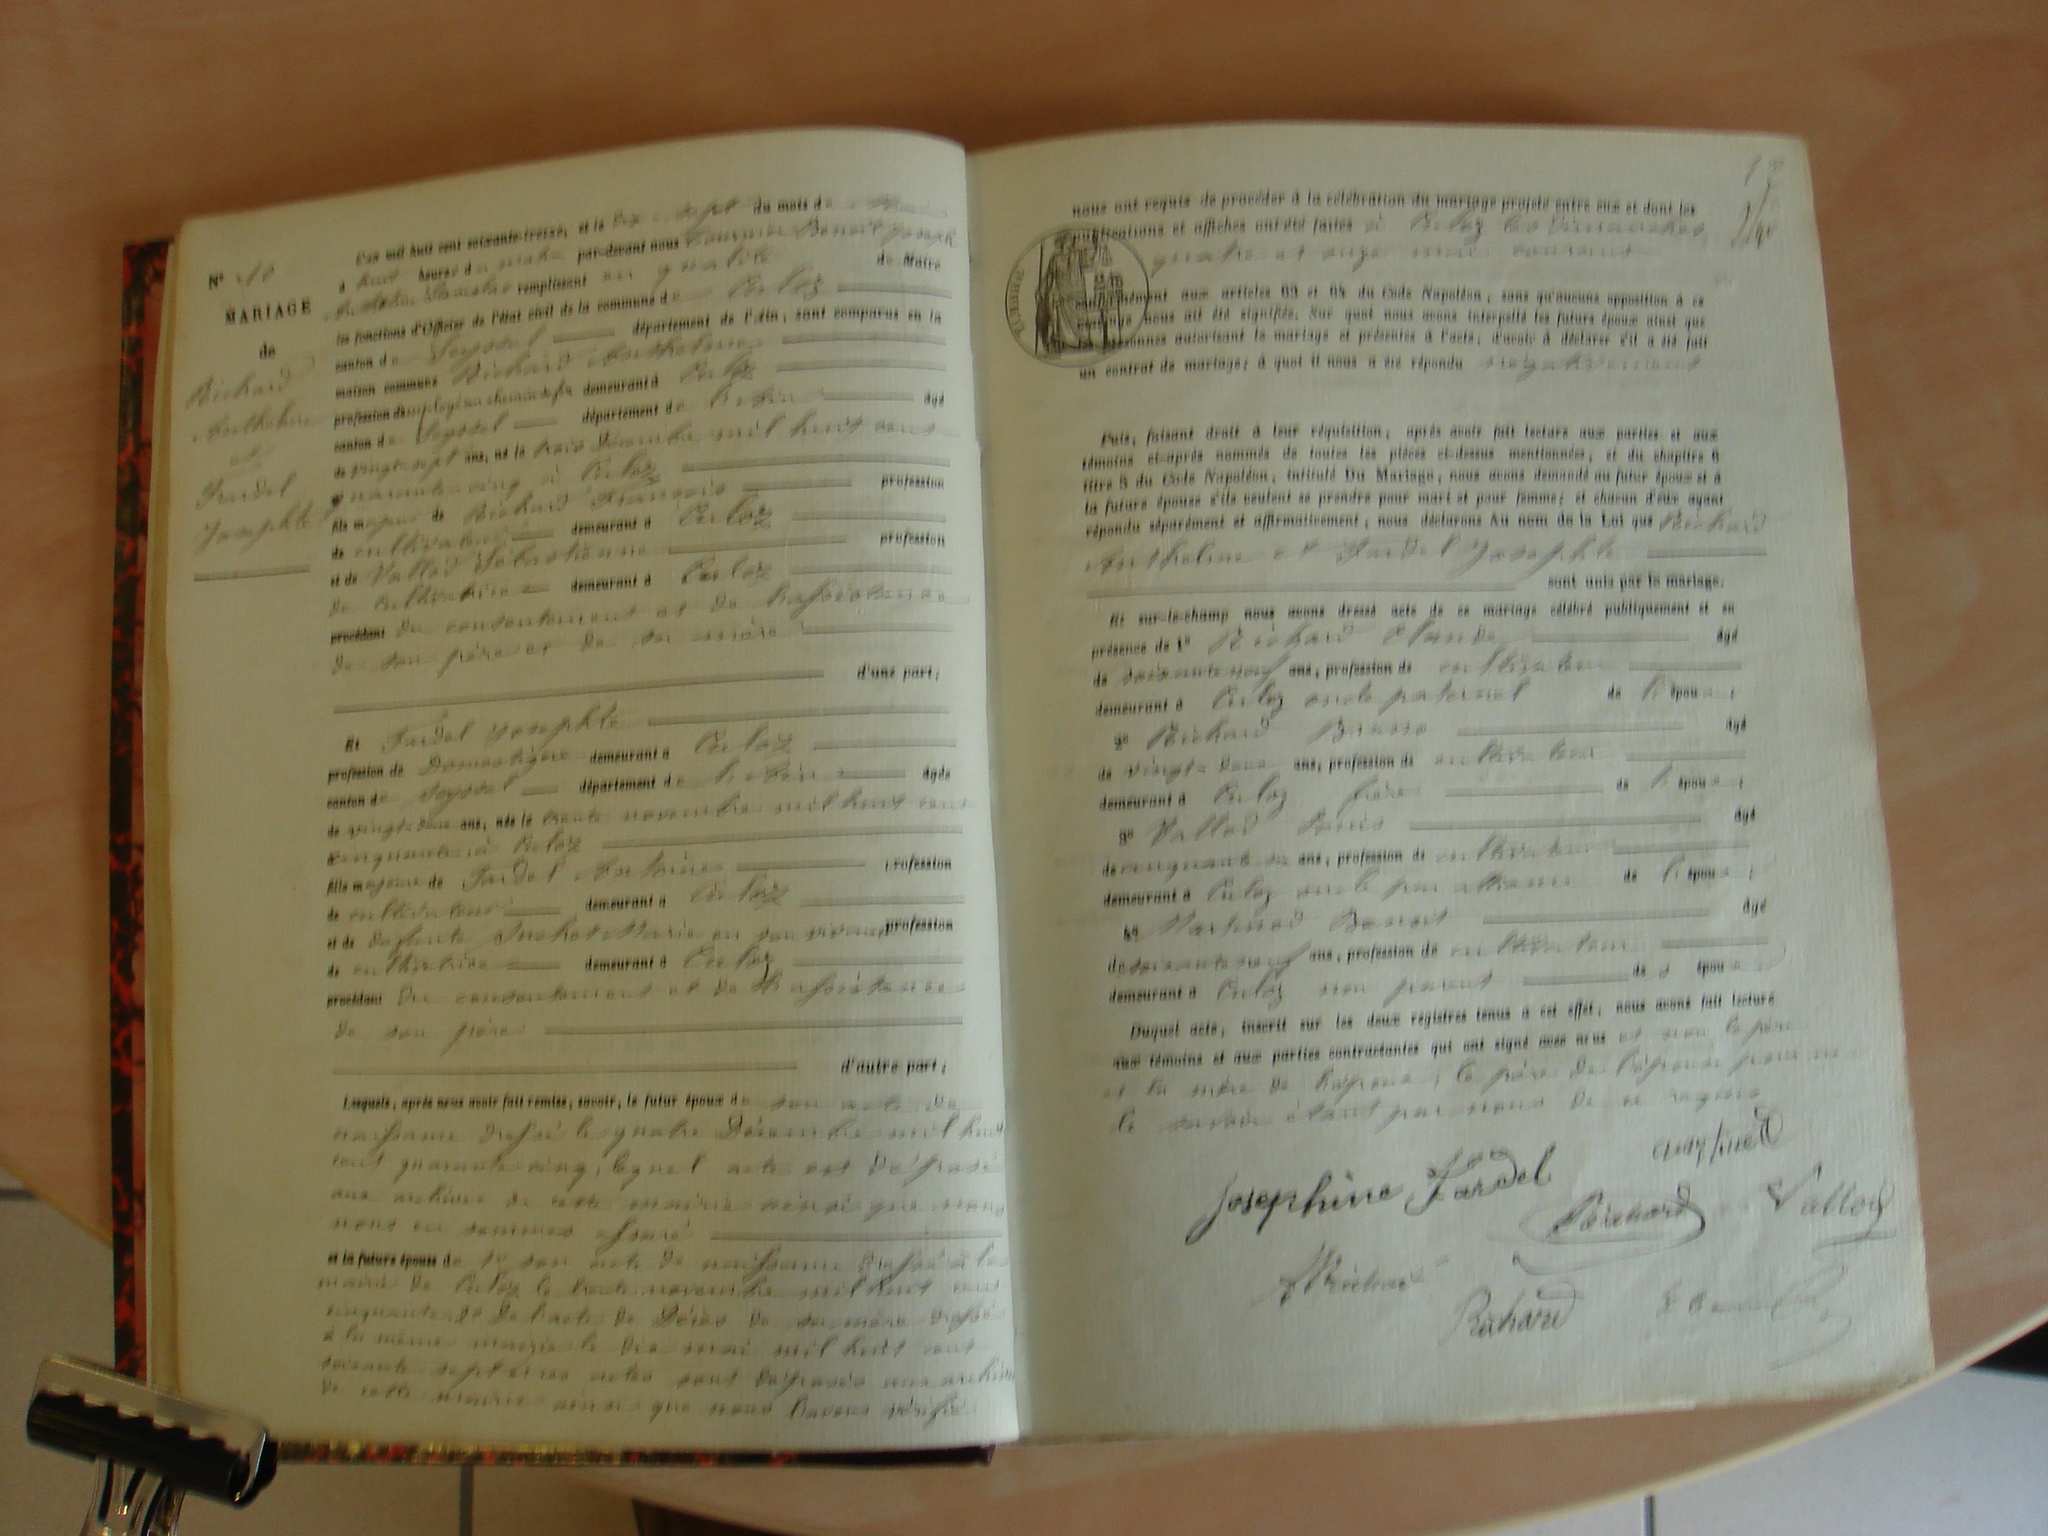 N° 10
MARIAGE
de
Richard
Anthelme
et
Fardel
Josephte
L'an mil huit cent soixante-treize, et le dix sept du mois de
à huit heures du matin par-devant nous Benoit Joseph
remplissant en qualité de Maire
les fonctions d'Officier de l'état civil de la commune de Culoz
canton de Seyssel département de l'Ain, sont comparus en la
maison commune Richard Anthelme
profession d'employé au chemin de fer demeurant à Culoz
canton de Seyssel département de l'Ain âgé
de vingt-sept ans, né le trois Décembre mil huit cent
quarante-cinq à Culoz
fils majeur de Richard François profession
de cultivateur demeurant à Culoz
et de Vallod Sébastienne profession
de cultivatrice demeurant à Culoz
procédant du consentement et de l'assistance
de son père et de sa mère
d'une part;
Et Fardel Josephte
profession de Domestique demeurant à Culoz
canton de Seyssel département de l'Ain âgée
de vingt-deux ans, née le trente novembre mil huit cent
cinquante à Culoz
fille majeure de Fardel Antoine profession
de cultivateur demeurant à Culoz
et de défunte Marie en son vivant profession
de cultivatrice demeurant à Culoz
procédant du consentement et de l'assistance
de son père
d'autre part;
Lesquels, après nous avoir fait remise, savoir, le futur époux de son acte de
naissance dressé le quatre Décembre mil huit
cent quarante cinq, lequel acte est déposé
aux archives de cette mairie ainsi que nous
nous en sommes assuré
et la future épouse de 1° son acte de naissance dressé à la
mairie de Culoz le trente novembre mil huit cent
cinquante 2° de l'acte de Décès de sa mère dressé
à la même mairie le dix mai mil huit cent
soixante sept et ces actes sont déposés aux archives
de cette mairie ainsi que nous l'avons vérifié
nous ont requis de procéder à la célébration du mariage projeté entre eux et dont les
publications et affiches ont été faites à Culoz les Dimanches
quatre et onze mai courant
TIMBRE
conformément aux articles 63 et 64 du Code Napoléon, sans qu'aucune opposition à ce
mariage nous ait été signifiée. Sur quoi nous avons interpellé les futurs époux ainsi que
les personnes autorisant le mariage et présentes à l'acte, d'avoir à déclarer s'il a été fait
un contrat de mariage; à quoi il nous a été répondu négativement
Puis, faisant droit à leur réquisition, après avoir fait lecture aux parties et aux
témoins ci-après nommés de toutes les pièces ci-dessus mentionnées, et du chapitre 6
titre 5 du Code Napoléon, intitulé Du Mariage, nous avons demandé au futur époux et à
la future épouse s'ils veulent se prendre pour mari et pour femme; et chacun d'eux ayant
répondu séparément et affirmativement, nous déclarons Au nom de la Loi que Richard
Anthelme et Fardel Josephte
sont unis par le mariage.
Et sur-le-champ nous avons dressé acte de ce mariage célébré publiquement et en
présence de 1° Richard Claude âgé
de soixante neuf ans, profession de cultivateur
demeurant à Culoz oncle paternel de l'époux;
2° Richard Bruno âgé
de vingt-deux ans, profession de cultivateur
demeurant à Culoz frère de l'époux;
3° Vallod âgé
de cinquante ans, profession de cultivateur
demeurant à Culoz oncle par alliance de l'époux;
4° Martinod Benoit âgé
de soixante neuf ans, profession de cultivateur
demeurant à Culoz non parent des époux
Duquel acte, inscrit sur les deux registres tenus à cet effet, nous avons fait lecture
aux témoins et aux parties contractantes qui ont signé avec nous et non le père
et la mère de l'époux, le père de l'épouse pour ne
le savoir étant par nous de ce requis
Josephine Fardel
Richard
Vallod
Richard
Richard